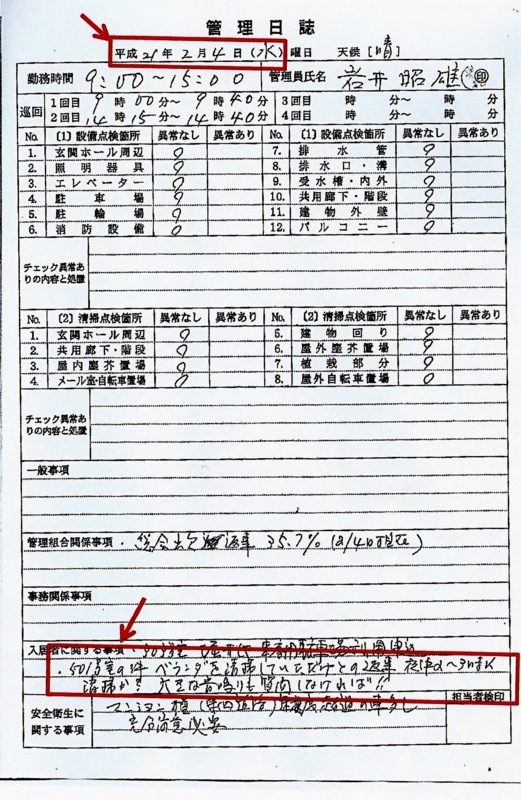 管理日誌
平成 21年 2月 4日 (水) 曜日 天候 [晴]
勤務時間 9:00～15:00 管理員氏名 岩井昭雄 印
巡回 1回目 9時00分～9時40分 3回目 時 分～ 時 分
2回目 14時15分～14時40分 4回目 時 分～ 時 分
No. (1) 設備点検箇所 異常なし 異常あり No. (1) 設備点検箇所 異常なし 異常あり
1. 玄関ホール周辺 ○ 7. 排水管 ○
2. 照明器具 ○ 8. 排水口・溝 ○
3. エレベーター ○ 9. 受水槽・内外 ○
4. 駐車場 ○ 10. 共用廊下・階段 ○
5. 駐輪場 ○ 11. 建物外壁 ○
6. 消防設備 ○ 12. バルコニー ○
チェック異常ありの内容と処置
No. (2) 清掃点検箇所 異常なし 異常あり No. (2) 清掃点検箇所 異常なし 異常あり
1. 玄関ホール周辺 ○ 5. 建物回り ○
2. 共用廊下・階段 ○ 6. 屋外塵芥置場 ○
3. 屋内塵芥置場 ○ 7. 植栽部分 ○
4. メール室・自転車置場 ○ 8. 屋外自転車置場 ○
チェック異常ありの内容と処置
一般事項
管理組合関係事項 ・総会出欠 返率 35.7% (2/4日現在)
事務関係事項
入居者に関する事項
の件 ベランダを清掃していただけとの返集
清掃か!
担当者検印
安全衛生に関する事項 マンション
必要